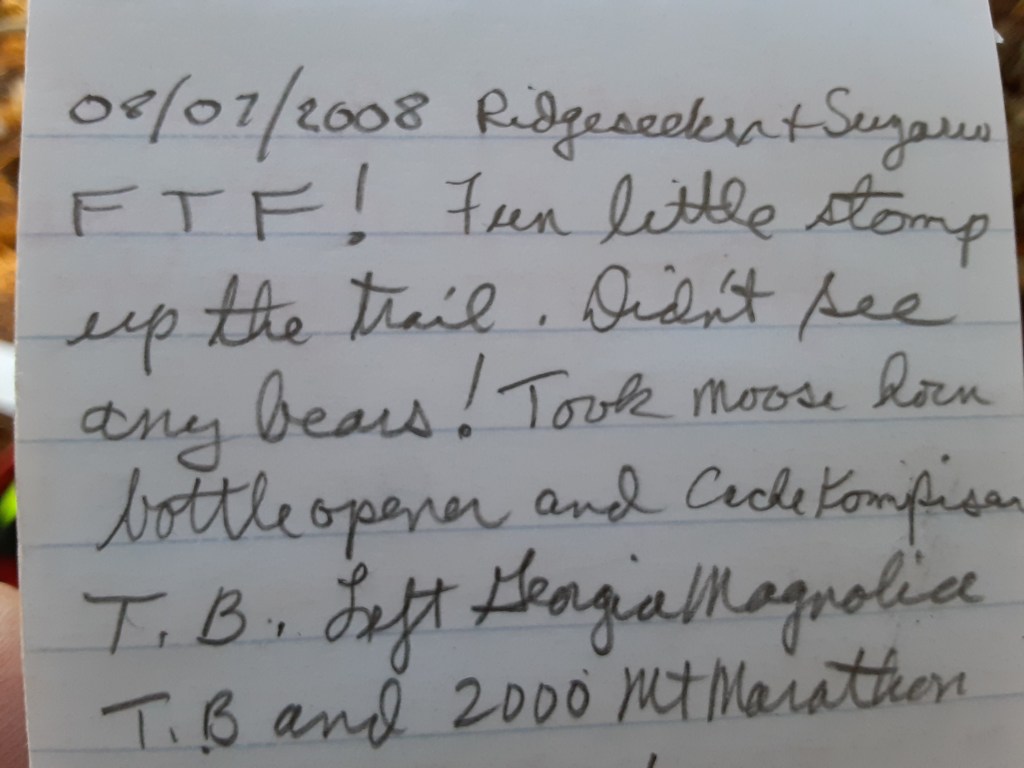 08/07/2008 Ridgeseeker + Sugarus
FTF! Fun little stomp
up the trail. Didn't see
any bears! Took moose horn
bottle opener and
T.B. Left Georgia Magnolia
T.B and 2000 Mt Marathon